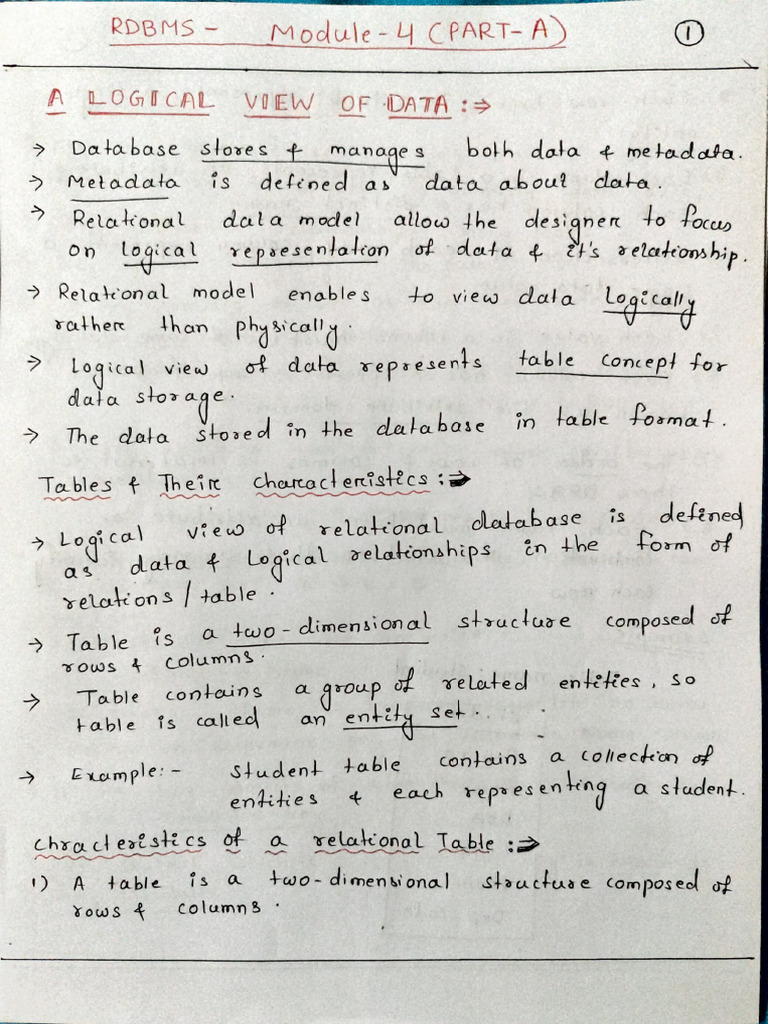 RDBMS - Module-4 (PART-A) 1
A LOGICAL VIEW OF DATA :⇒
→ Database stores & manages both data & metadata.
→ Metadata is defined as data about data.
→ Relational data model allow the designer to focus
on logical representation of data & it's relationship.
→ Relational model enables to view data Logically
rather than physically.
→ Logical view of data represents table concept for
data storage.
→ The data stored in the database in table format.
Tables & Their Characteristics :⇒
→ Logical view of relational database is defined
as data & Logical relationships in the form of
relations / table.
→ Table is a two-dimensional structure composed of
rows & columns.
→ Table contains a group of related entities, so
table is called an entity set.
→ Example:- Student table contains a collection of
entities & each representing a student.
Chracteristics of a relational Table :⇒
1) A table is a two-dimensional structure composed of
rows & columns.